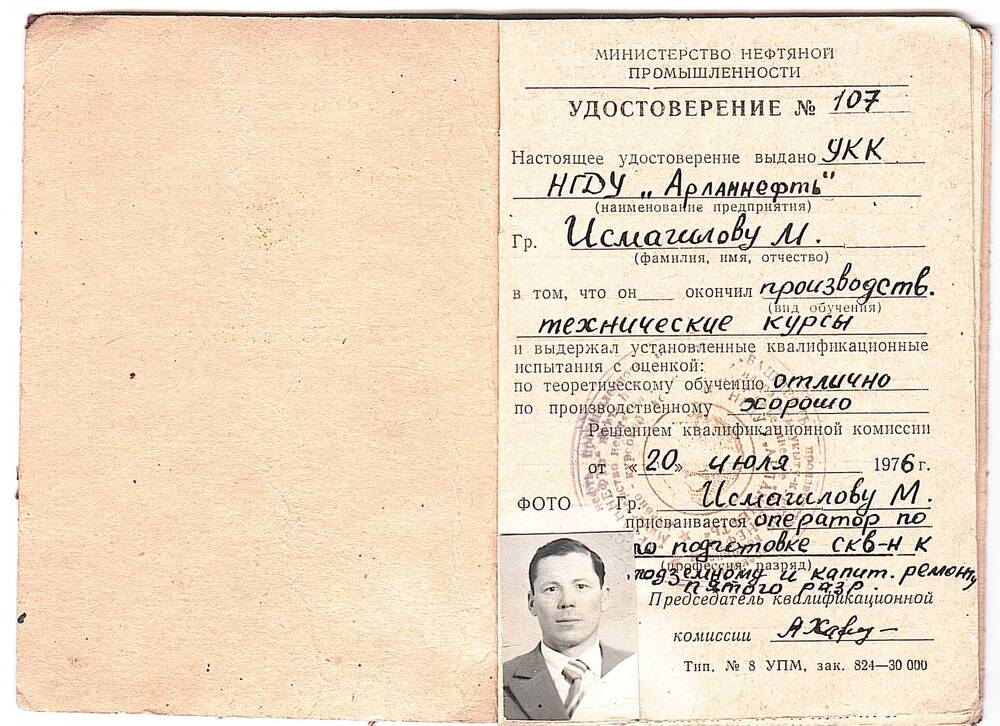 МИНИСТЕРСТВО НЕФТЯНОЙ
ПРОМЫШЛЕННОСТИ
УДОСТОВЕРЕНИЕ № 107
Настоящее удостоверение выдано УКК
НГДУ „Арланнефть"
(наименование предприятия)
Гр. Исмагилову М.
(фамилия, имя, отчество)
в том, что он окончил производств.
(вид обучения)
технические курсы
и выдержал установленные квалификационные
испытания с оценкой:
по теоретическому обучению отлично
по производственному хорошо
Решением квалификационной комиссии
от «20» июля 1976 г.
ФОТО Гр. Исмагилову М.
присваивается оператор по
по подготовке скв-н к
(профессия, разряд)
подземному и капит. ремонту
пятого разр.
Председатель квалификационной
комиссии
Тип. № 8 УПМ, зак. 824—30 000